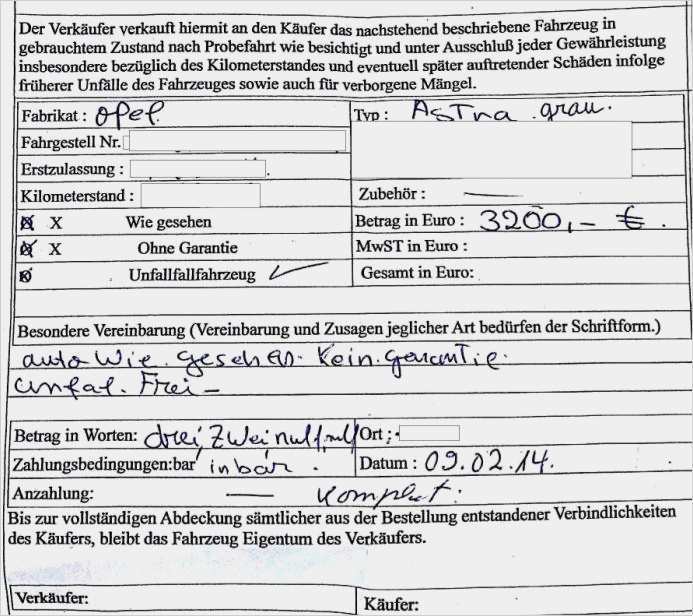 Der Verkäufer verkauft hiermit an den Käufer das nachstehend beschriebene Fahrzeug in
gebrauchtem Zustand nach Probefahrt wie besichtigt und unter Ausschluß jeder Gewährleistung
insbesondere bezüglich des Kilometerstandes und eventuell später auftretender Schäden infolge
früherer Unfälle des Fahrzeuges sowie auch für verborgene Mängel.
Fabrikat : Opel. Typ : Astra .grau.
Fahrgestell Nr.
Erstzulassung :
Kilometerstand : Zubehör : —
X Wie gesehen Betrag in Euro : 3200,- €.
X Ohne Garantie MwST in Euro :
Unfallfallfahrzeug Gesamt in Euro:
Besondere Vereinbarung (Vereinbarung und Zusagen jeglicher Art bedürfen der Schriftform.)
auto wie. gesehen. Kein. garantie.
unfal. Frei –
Betrag in Worten: drei, zwei null, null Ort ;
Zahlungsbedingungen:bar in bar . Datum : 09.02.14.
Anzahlung: — Komplet.
Bis zur vollständigen Abdeckung sämtlicher aus der Bestellung entstandener Verbindlichkeiten
des Käufers, bleibt das Fahrzeug Eigentum des Verkäufers.
Verkäufer: Käufer: